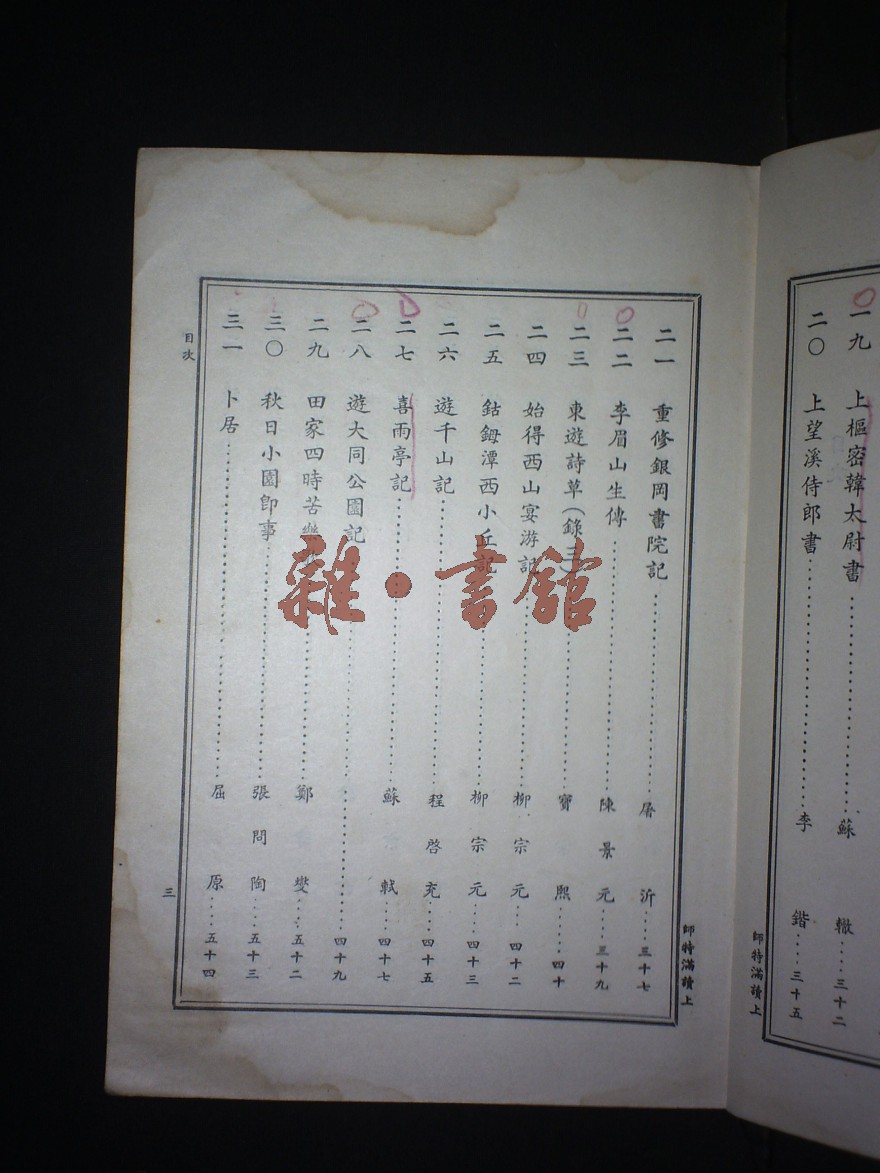 一九 上樞密韓太尉書 蘇轍 三十二
二〇 上望溪侍郎書 李鍇 三十五
師特滿讀上
二一 重修銀岡書院記 屠沂 三十七
二二 李眉山生傳 陳景元 三十九
二三 東遊詩草(錄三) 寶熙 四十
二四 始得西山宴游記 柳宗元 四十二
二五 鈷鉧潭西小丘記 柳宗元 四十三
二六 遊千山記 程啓充 四十五
二七 喜雨亭記 蘇軾 四十七
二八 遊大同公園記 四十九
二九 田家四時苦樂 鄭燮 五十二
三〇 秋日小園即事 張問陶 五十三
三一 卜居 屈原 五十四
目次
三
師特滿讀上
雜·書館